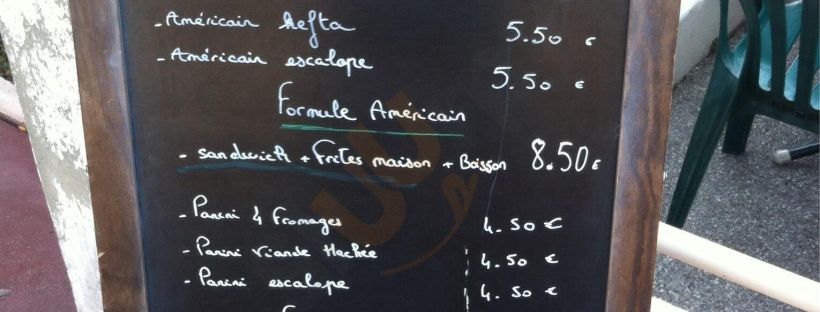 - Américain kefta 5.50 €
- Américain escalope 5.50 €
Formule Américain
- sandwich + Frites maison + Boisson 8.50 €
- Panini 4 Fromages 4.50 €
- Panini Viande Hachée 4.50 €
- Panini escalope 4.50 €